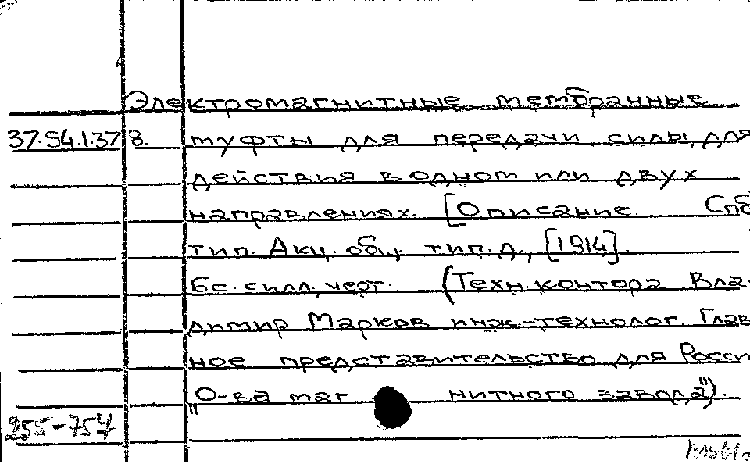 Электромагнитные мембранные
37.54.1.378. муфты для передачи силы, для
действия в одном или двух
направлениях. [Описание. Спб
тип. Акц. общ. тип. д., [1914].
6с. с илл., черт. (Техн. контора Вла-
димир Марков инж.-технолог. Глав
ное представительство для Росси
"О-ва маг нитного завода").
255-757